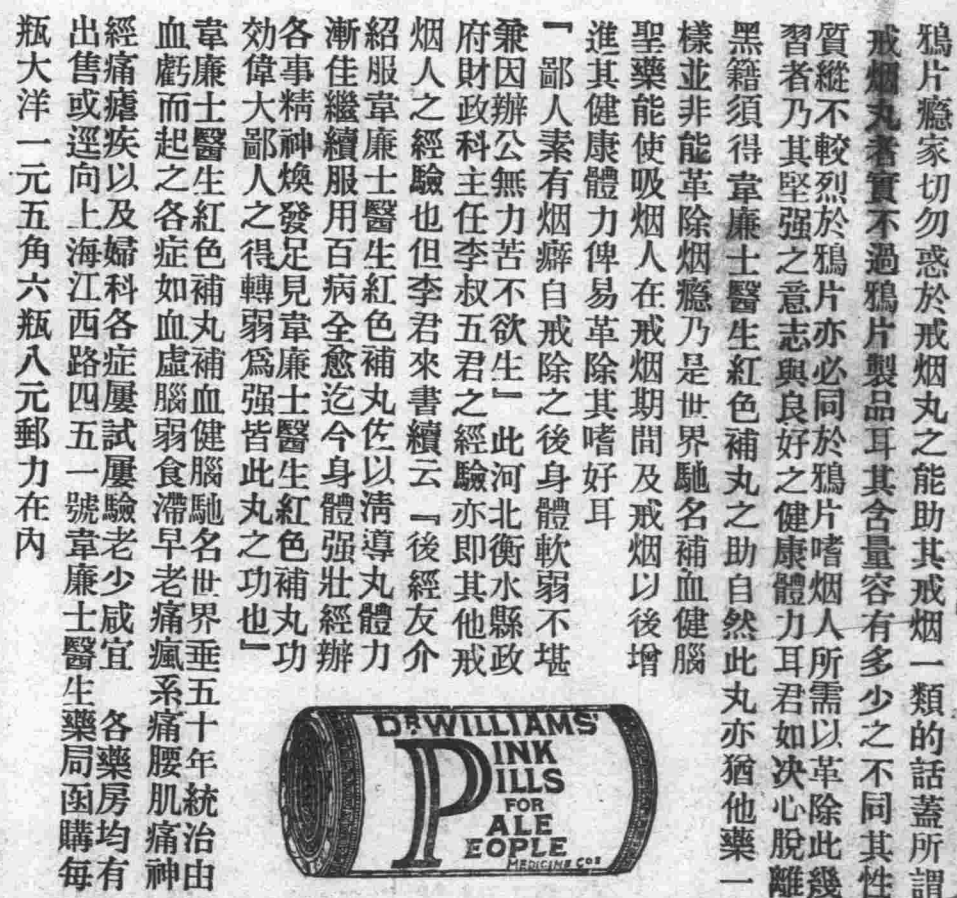 鴉片癮家切勿惑於戒烟丸之能助其戒烟一類的話蓋所謂
戒烟丸者實不過鴉片製品耳其含量容有多少之不同其性
質縱不較烈於鴉片亦必同於鴉片嗜烟人所需以革除此幾
習者乃其堅强之意志與良好之健康體力耳君如决心脫離
黑籍須得韋廉士醫生紅色補丸之助自然此丸亦猶他藥一
樣並非能革除烟癮乃是世界馳名補血健腦
聖藥能使吸烟人在戒烟期間及戒烟以後增
進其健康體力俾易革除其嗜好耳
『鄙人素有烟癖自戒除之後身體軟弱不堪
兼因辦公無力苦不欲生』此河北衡水縣政
府財政科主任李叔五君之經驗亦即其他戒
烟人之經驗也但李君來書續云『後經友介
紹服韋廉士醫生紅色補丸佐以淸導丸體力
漸佳繼續服用百病全愈迄今身體强壯經辦
各事精神煥發足見韋廉士醫生紅色補丸功
効偉大鄙人之得轉弱爲强皆此丸之功也』
韋廉士醫生紅色補丸補血健腦馳名世界垂五十年統治由
血虧而起之各症如血虛腦弱食滯早老痛瘋系痛腰肌痛神
經痛瘧疾以及婦科各症屢試屢驗老少咸宜 各藥房均有
出售或逕向上海江西路四五一號韋廉士醫生藥局函購每
瓶大洋一元五角六瓶八元郵力在內
DR WILLIAMS'
PINK
PILLS
FOR
PALE
PEOPLE
MEDICINE COS